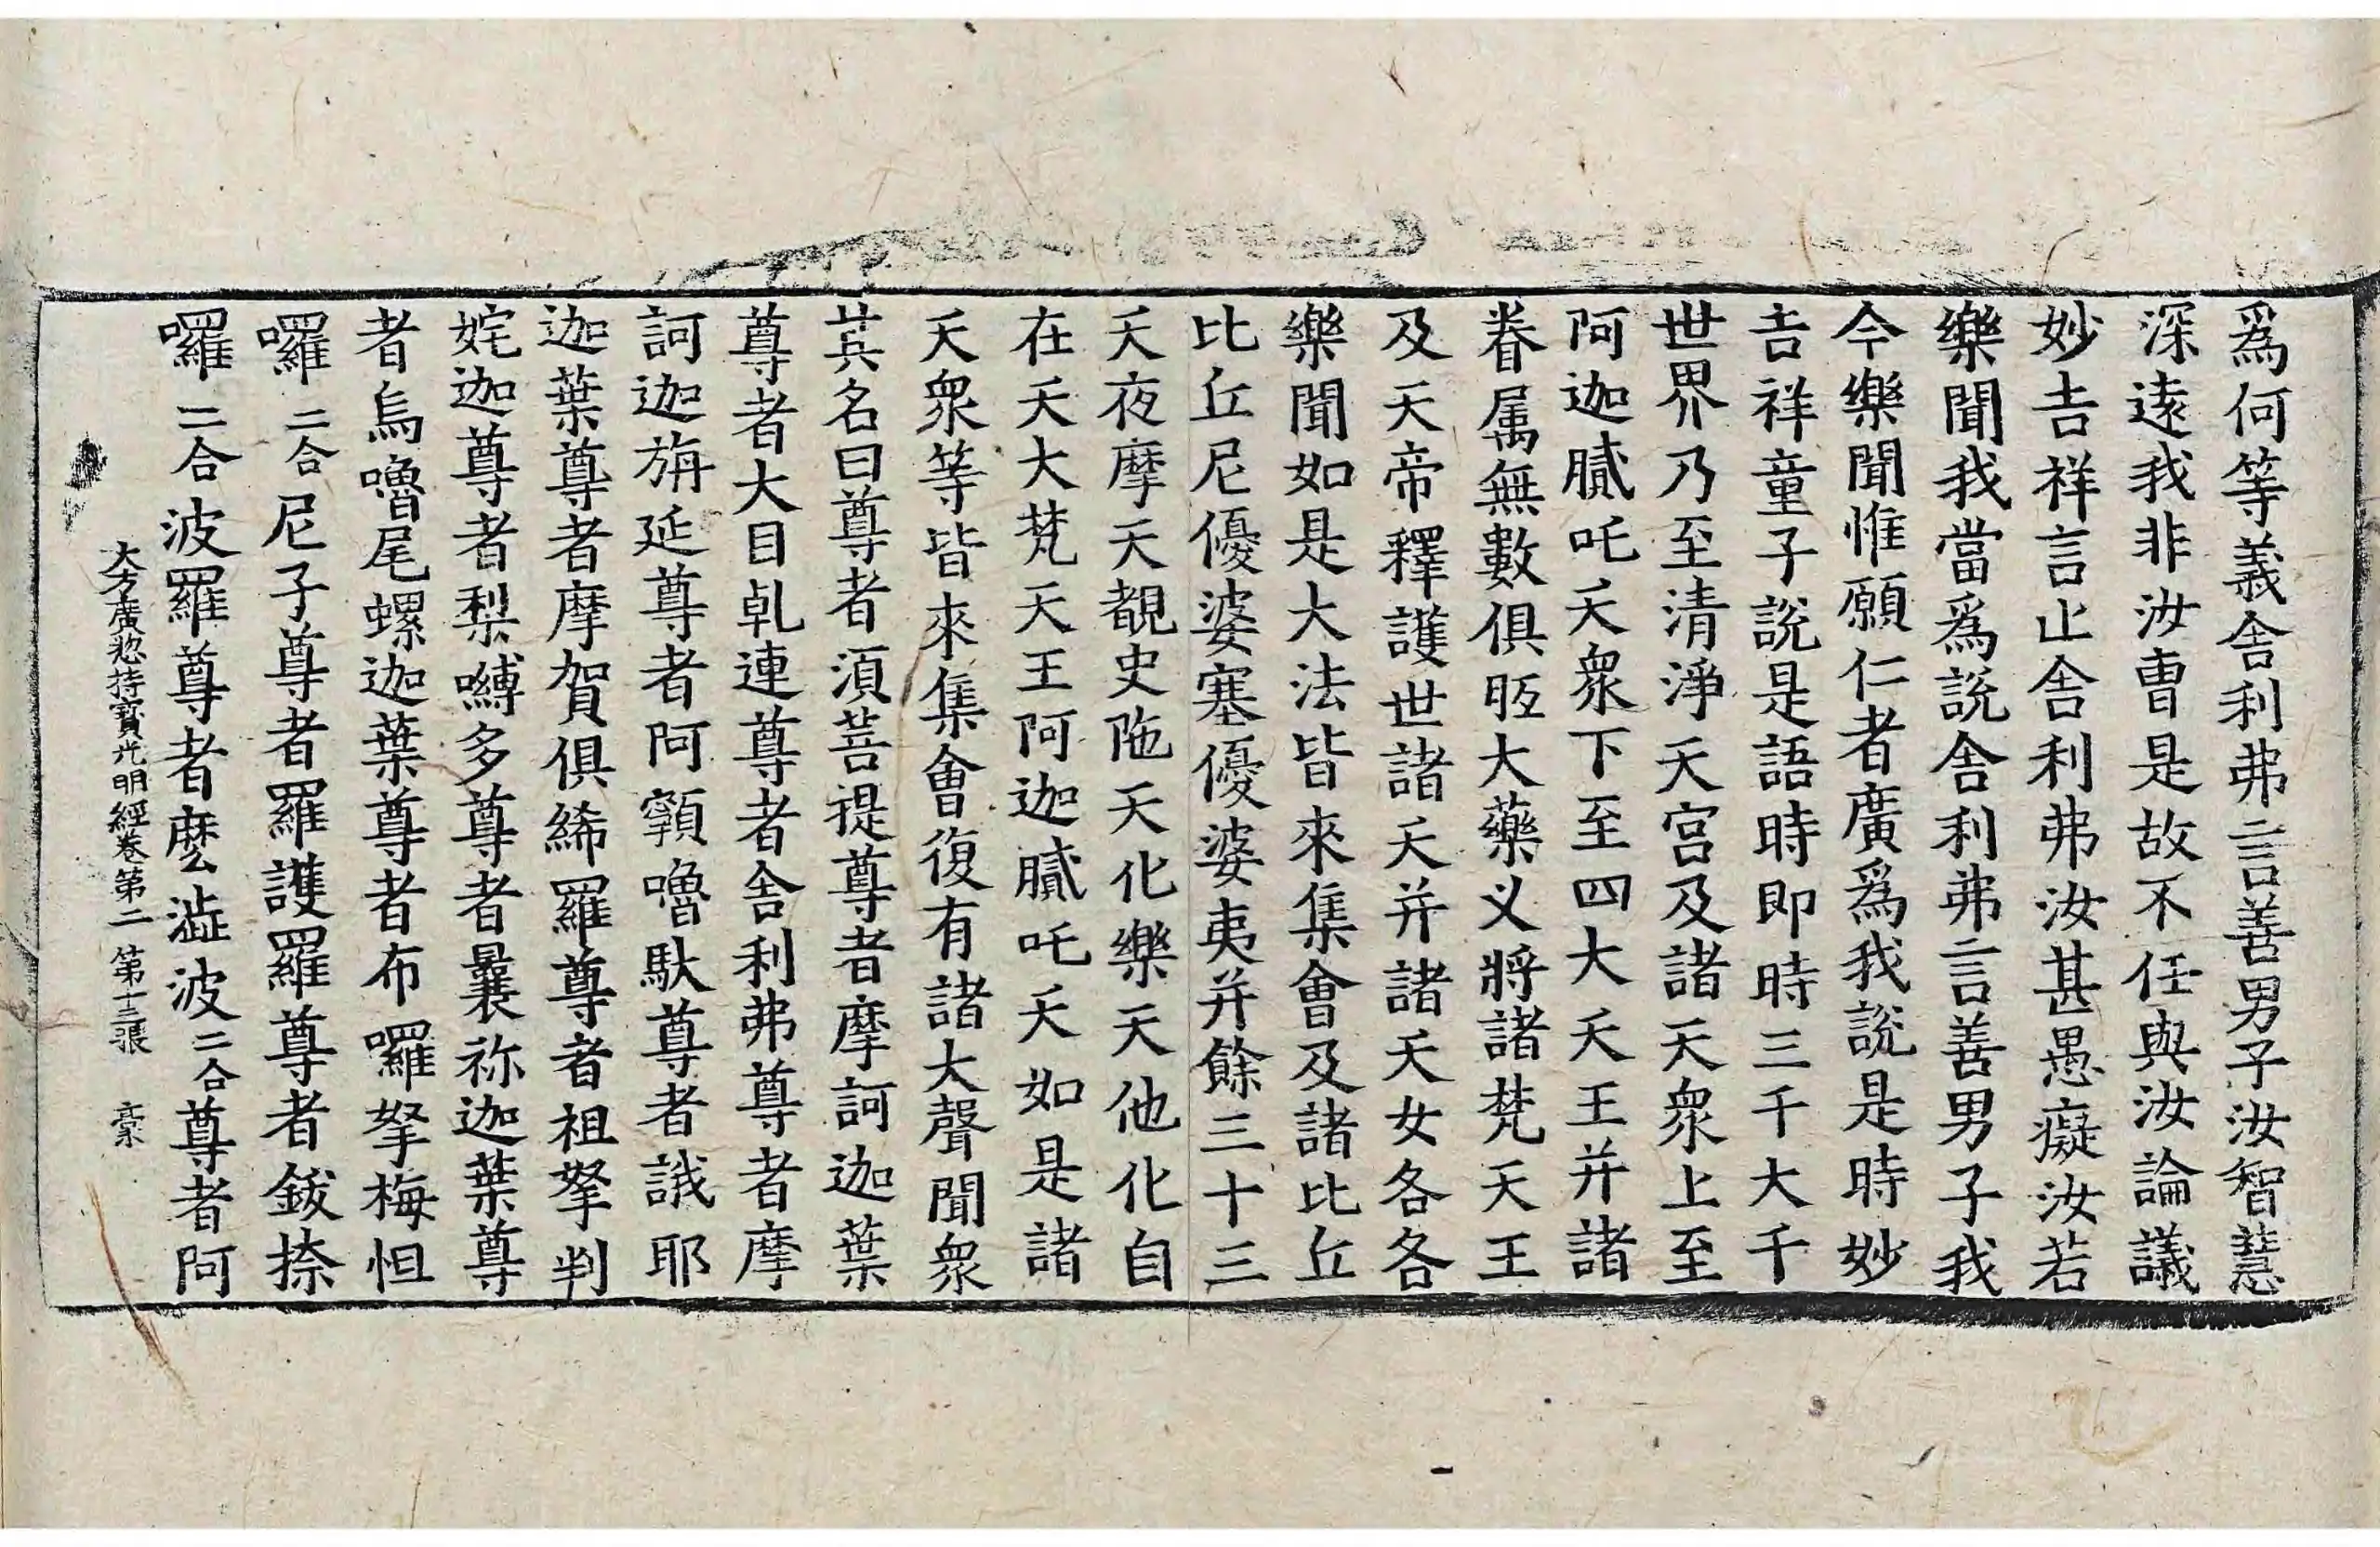 爲何等義舍利弗言善男子汝智慧
深遠我非汝曹是故不任與汝論議
妙吉祥言止舍利弗汝甚愚癡汝若
樂聞我當爲說舍利弗言善男子我
今樂聞惟願仁者廣爲我說是時妙
吉祥童子說是語時即時三千大千
世界乃至清淨天宮及諸天衆上至
阿迦膩吒天衆下至四大天王并諸
眷属無數俱胝大藥义將諸梵天王
及天帝釋護世諸天并諸天女各各
樂聞如是大法皆來集會及諸比丘
比丘尼優婆塞優婆夷并餘三十三
天夜摩天覩史陁天化樂天他化自
在天大梵天王阿迦膩吒天如是諸
天衆等皆來集會復有諸大聲聞衆
其名曰尊者湏菩提尊者摩訶迦葉
尊者大目乹連尊者舍利弗尊者摩
訶迦旃延尊者阿䫂嚕馱尊者誐耶
迦葉尊者摩賀俱絺羅尊者祖拏判
姹迦尊者梨嚩多尊者曩祢迦葉尊
者烏嚕尾螺迦葉尊者布囉拏梅怛
囉二合尼子尊者羅護羅尊者鈸捺
囉二合波羅尊者麽澁波二合尊者阿
大方廣惣持寶光明經卷第二 第十三張 豪